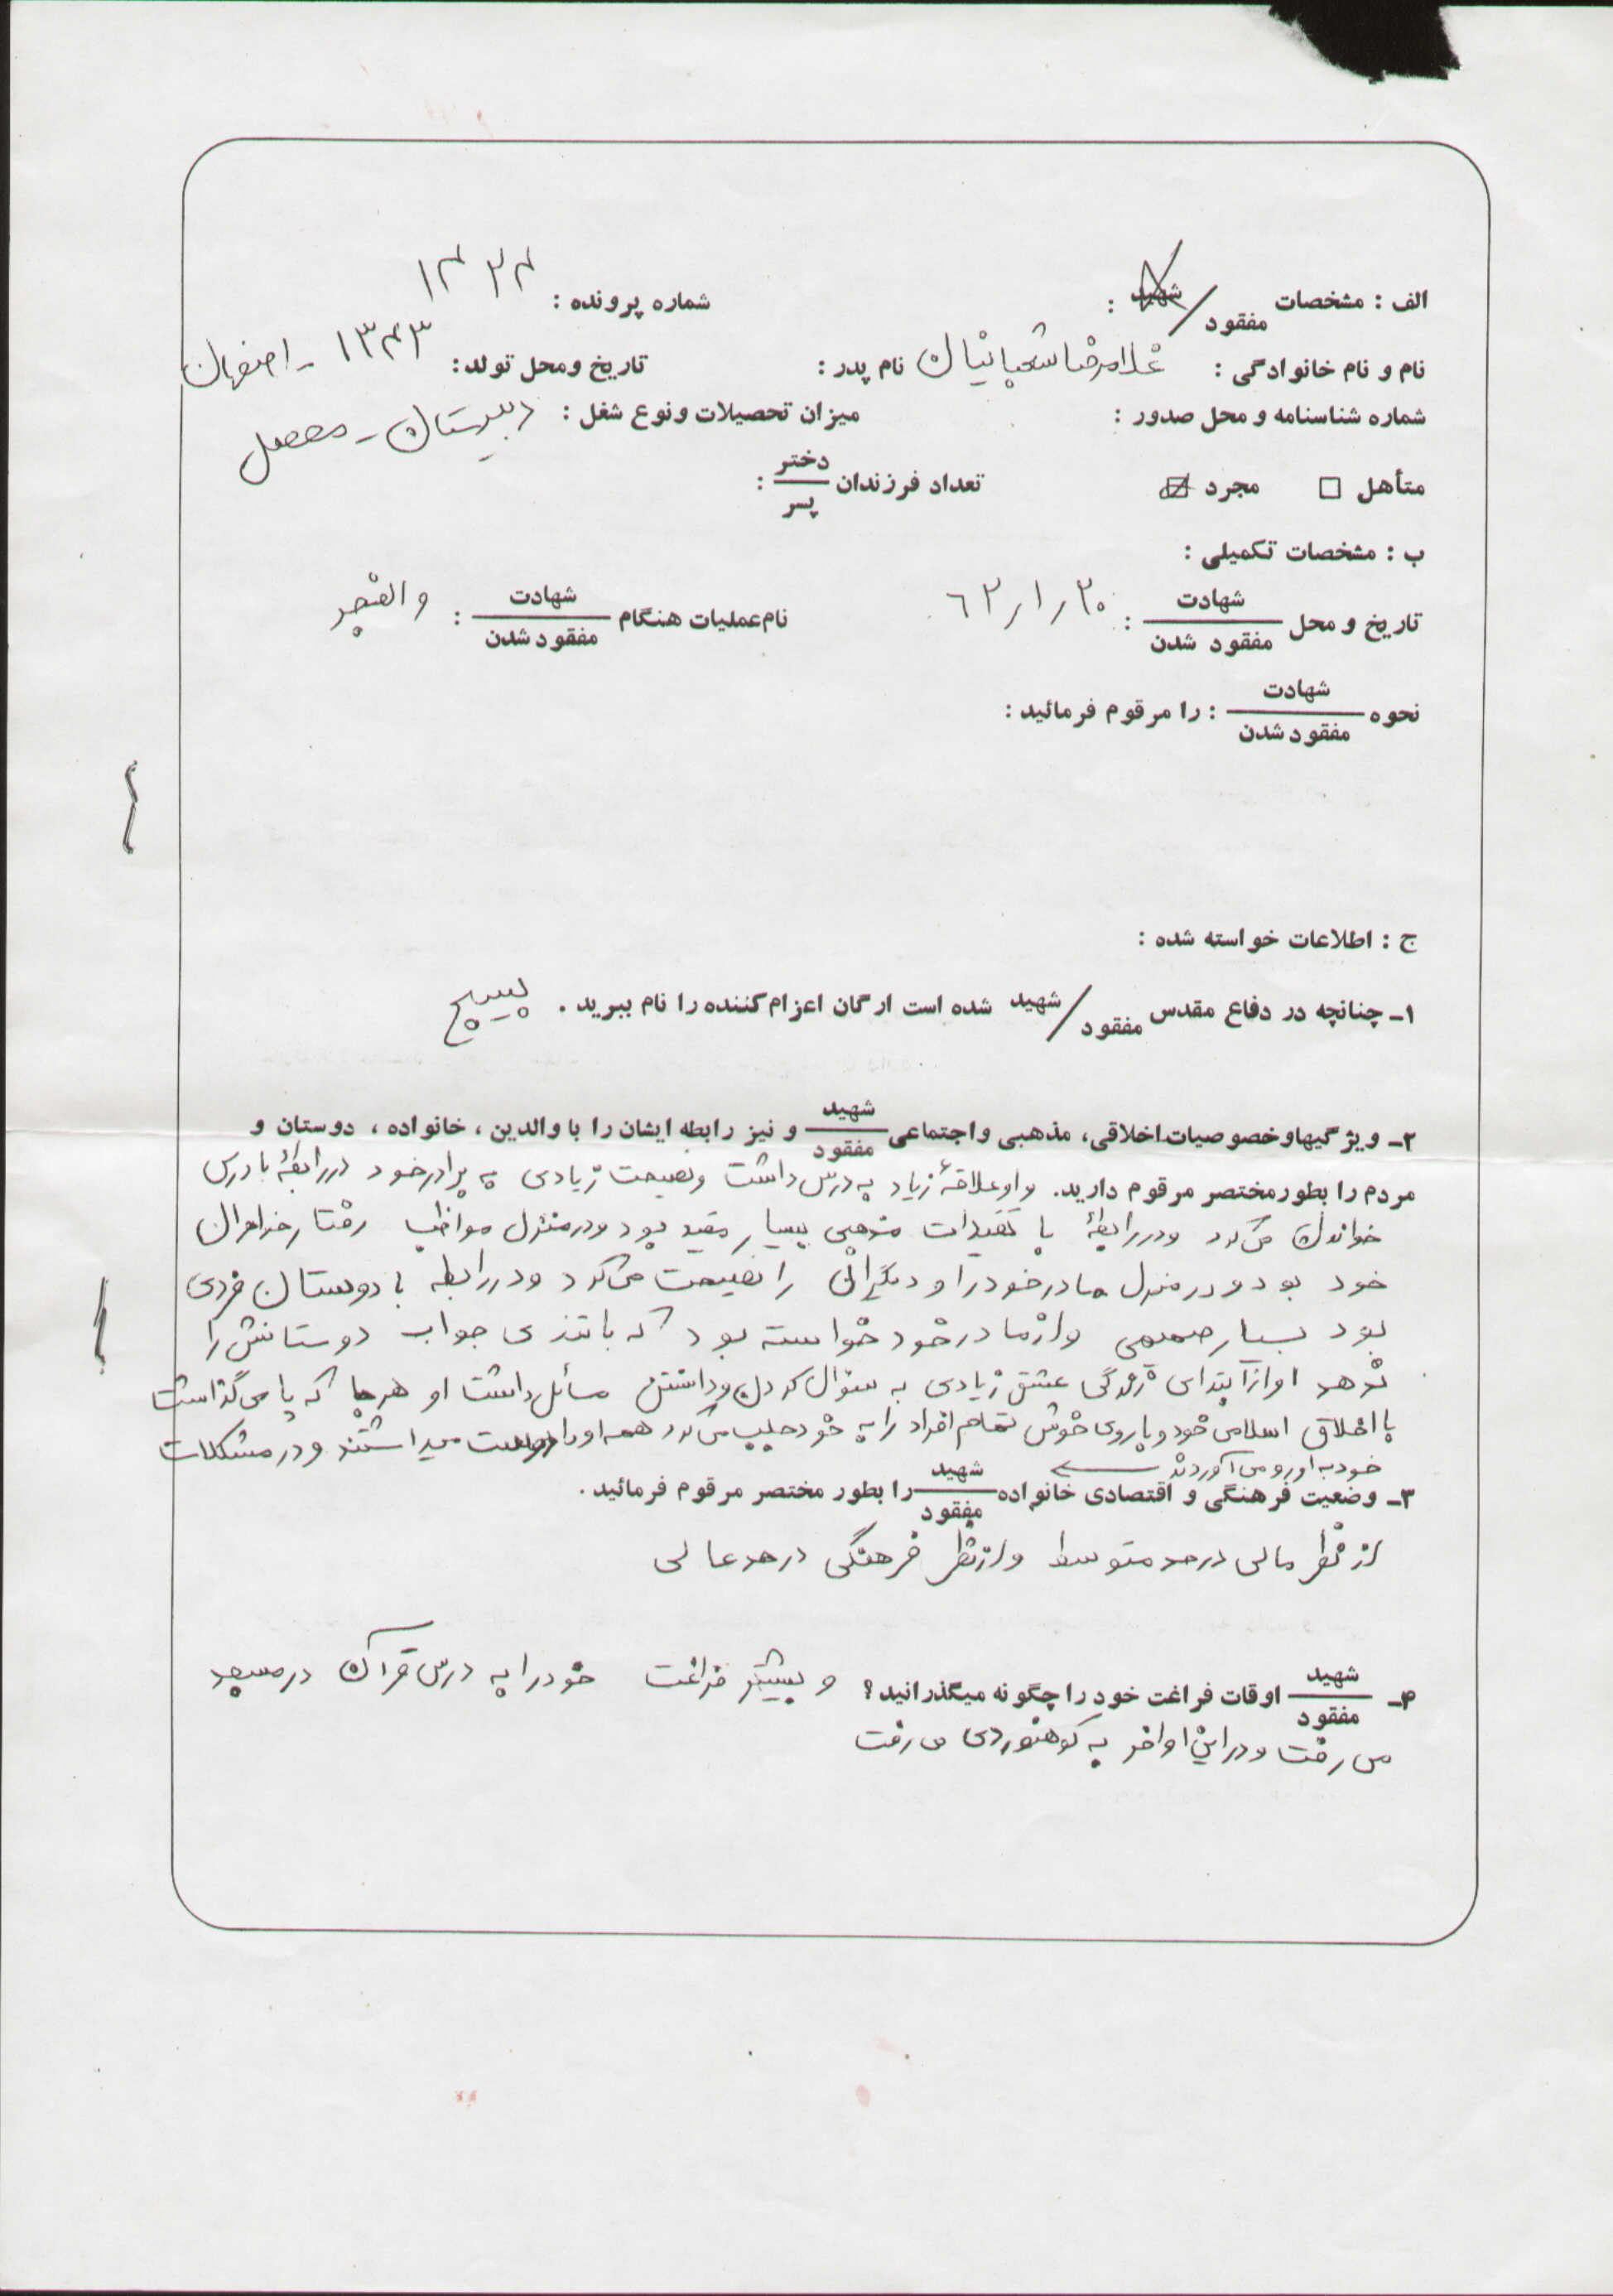 الف : مشخصات شهید / مفقود : شماره پرونده : ۱۴۳۴
نام و نام خانوادگی : غلامرضا شعبانیان نام پدر : تاریخ ومحل تولد : ۱۳۴۳ ـ اصفهان
شماره شناسنامه و محل صدور : میزان تحصیلات ونوع شغل : دبیرستان ـ محصل
متأهل □ مجرد ☑ تعداد فرزندان دختر / پسر :
ب : مشخصات تکمیلی :
تاریخ و محل شهادت / مفقود شدن : ۶۲/۱/۲۰ نام عملیات هنگام شهادت / مفقود شدن : والفجر
نحوه شهادت / مفقود شدن : را مرقوم فرمائید :
ج : اطلاعات خواسته شده :
۱ـ چنانچه در دفاع مقدس شهید / مفقود شده است ارگان اعزام کننده را نام ببرید . بسیج
۲ـ ویژگیها وخصوصیات اخلاقی، مذهبی واجتماعی شهید / مفقود و نیز رابطه ایشان را با والدین ، خانواده ، دوستان و
مردم را بطور مختصر مرقوم دارید. و او علاقهٔ زیاد به درس داشت و نصیحت زیادی به برادر خود در رابطهٔ با درس
خواندن می‌کرد و در رابطهٔ با تقیدات مذهبی بسیار مقید بود و در منزل مواظب رفتار خواهران
خود بود و در منزل مادر خود را و دیگران را نصیحت می‌کرد و در رابطه با دوستان فردی
بود بسیار صمیمی و از مادر خود خواسته بود که با تندی جواب دوستانش را
ندهد او از ابتدای زندگی عشق زیادی به سئوال کردن و دانستن مسائل داشت او هر جا که پا می‌گذاشت
با اخلاق اسلامی خود و با روی خوش تمام افراد را به خود جلب می‌کرد همه او را دوست میداشتند و در مشکلات
خود به او رو می‌آوردند
۳ـ وضعیت فرهنگی و اقتصادی خانواده شهید / مفقود را بطور مختصر مرقوم فرمائید .
از نظر مالی در حد متوسط و از نظر فرهنگی در حد عالی
۴ـ شهید / مفقود اوقات فراغت خود را چگونه میگذرانید ؟ و بیشتر فراغت خود را به درس قرآن در مسجد
می رفت و در این اواخر به کوهنوردی می رفت